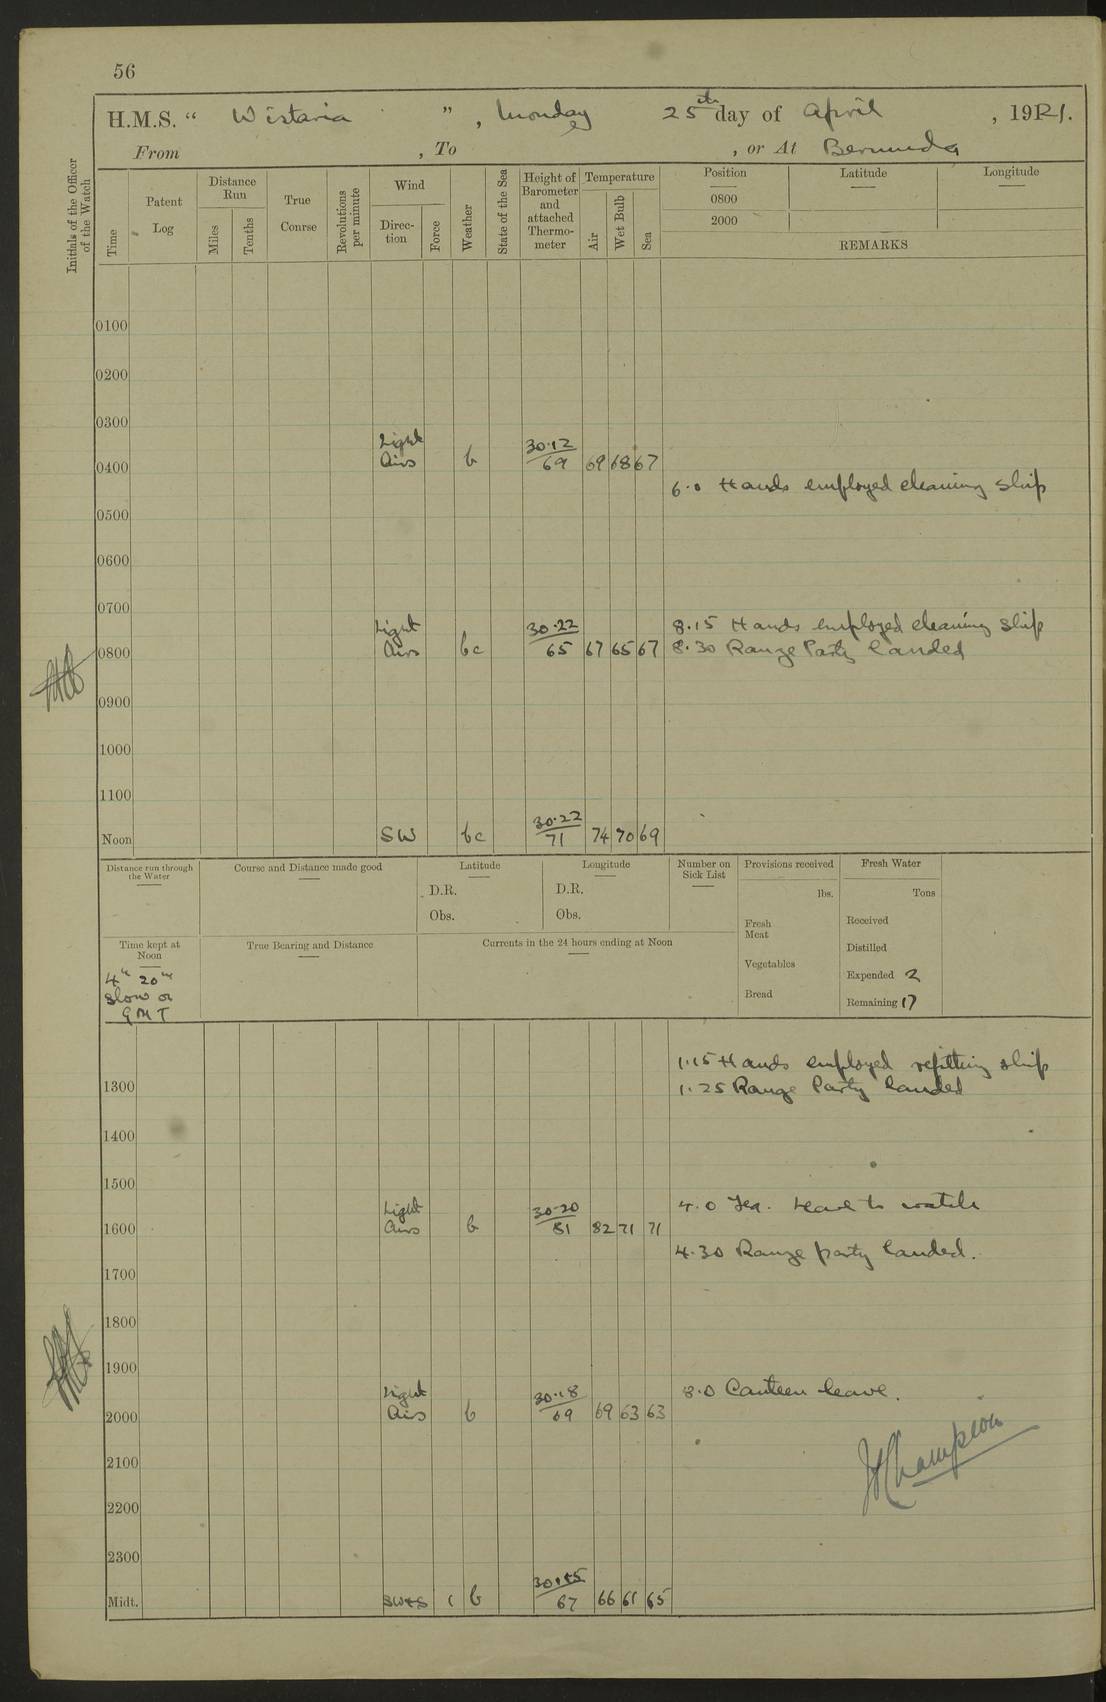 56
H.M.S. “ Wistaria ” , Monday 25th day of April , 1921.
From , To , or At Bermuda
Initials of the Officer of the Watch
Time
Patent Log
Distance Run
Miles
Tenths
True Course
Revolutions per minute
Wind
Direc-tion
Force
Weather
State of the Sea
Height of Barometer and attached Thermo-meter
Temperature
Air
Wet Bulb
Sea
Position
0800
2000
Latitude
Longitude
REMARKS
0100
0200
0300
0400 Light Airs b 30.12 69 69 68 67
6.0 Hands employed cleaning ship
0500
0600
0700
8.15 Hands employed cleaning ship
0800 Light Airs bc 30.22 65 67 65 67 8.30 Range Party landed
0900
1000
1100
Noon SW bc 30.22 71 74 70 69
Distance run through the Water
Course and Distance made good
Latitude
D.R.
Obs.
Longitude
D.R.
Obs.
Number on Sick List
Provisions received
lbs.
Fresh Meat
Vegetables
Bread
Fresh Water
Tons
Received
Distilled
Expended 2
Remaining 17
Time kept at Noon
4h 20m
slow on
GMT
True Bearing and Distance
Currents in the 24 hours ending at Noon
1.15 Hands employed refitting ship
1300 1.25 Range Party landed
1400
1500
4.0 Tea. Leave to watch
1600 Light Airs b 30.20 81 82 71 71
4.30 Range party landed.
1700
1800
1900
8.0 Canteen leave.
2000 Light Airs b 30.18 69 69 63 63
Champion
2100
2200
2300
Midt. 1 b 30.15 67 66 61 65